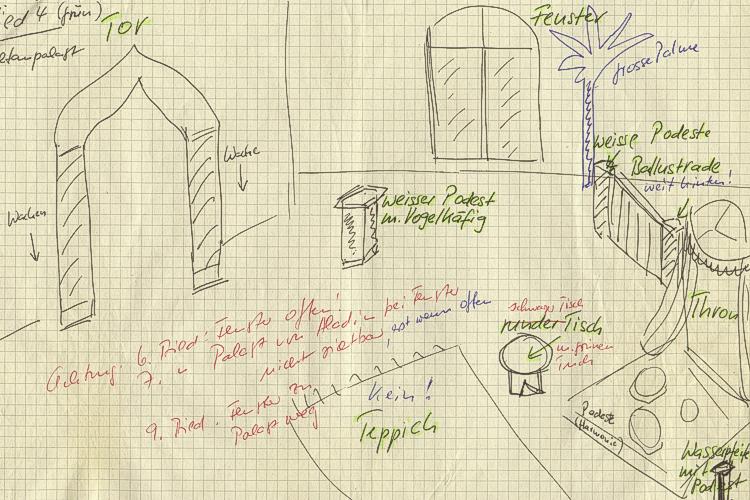 ied 4 (grün)
Tor
Fenster
grosse Palme
Wache
Wachen
weisse Podeste
Ballustrade
weit hinten!
weisser Podest
m. Vogelkäfig
Thron
schwarzer Tisch
runder Tisch
m. grünem
Tuch
Achtung: 6. Bild: Fenster offen!
7. " Palast von Alad. in bei Fenster
nicht sichtbar, erst wenn offen
9. Bild. Fenster zu,
Palast weg
Kein!
Teppich
Podeste
(Harmonie)
Wasserpfeife
mit
Podest